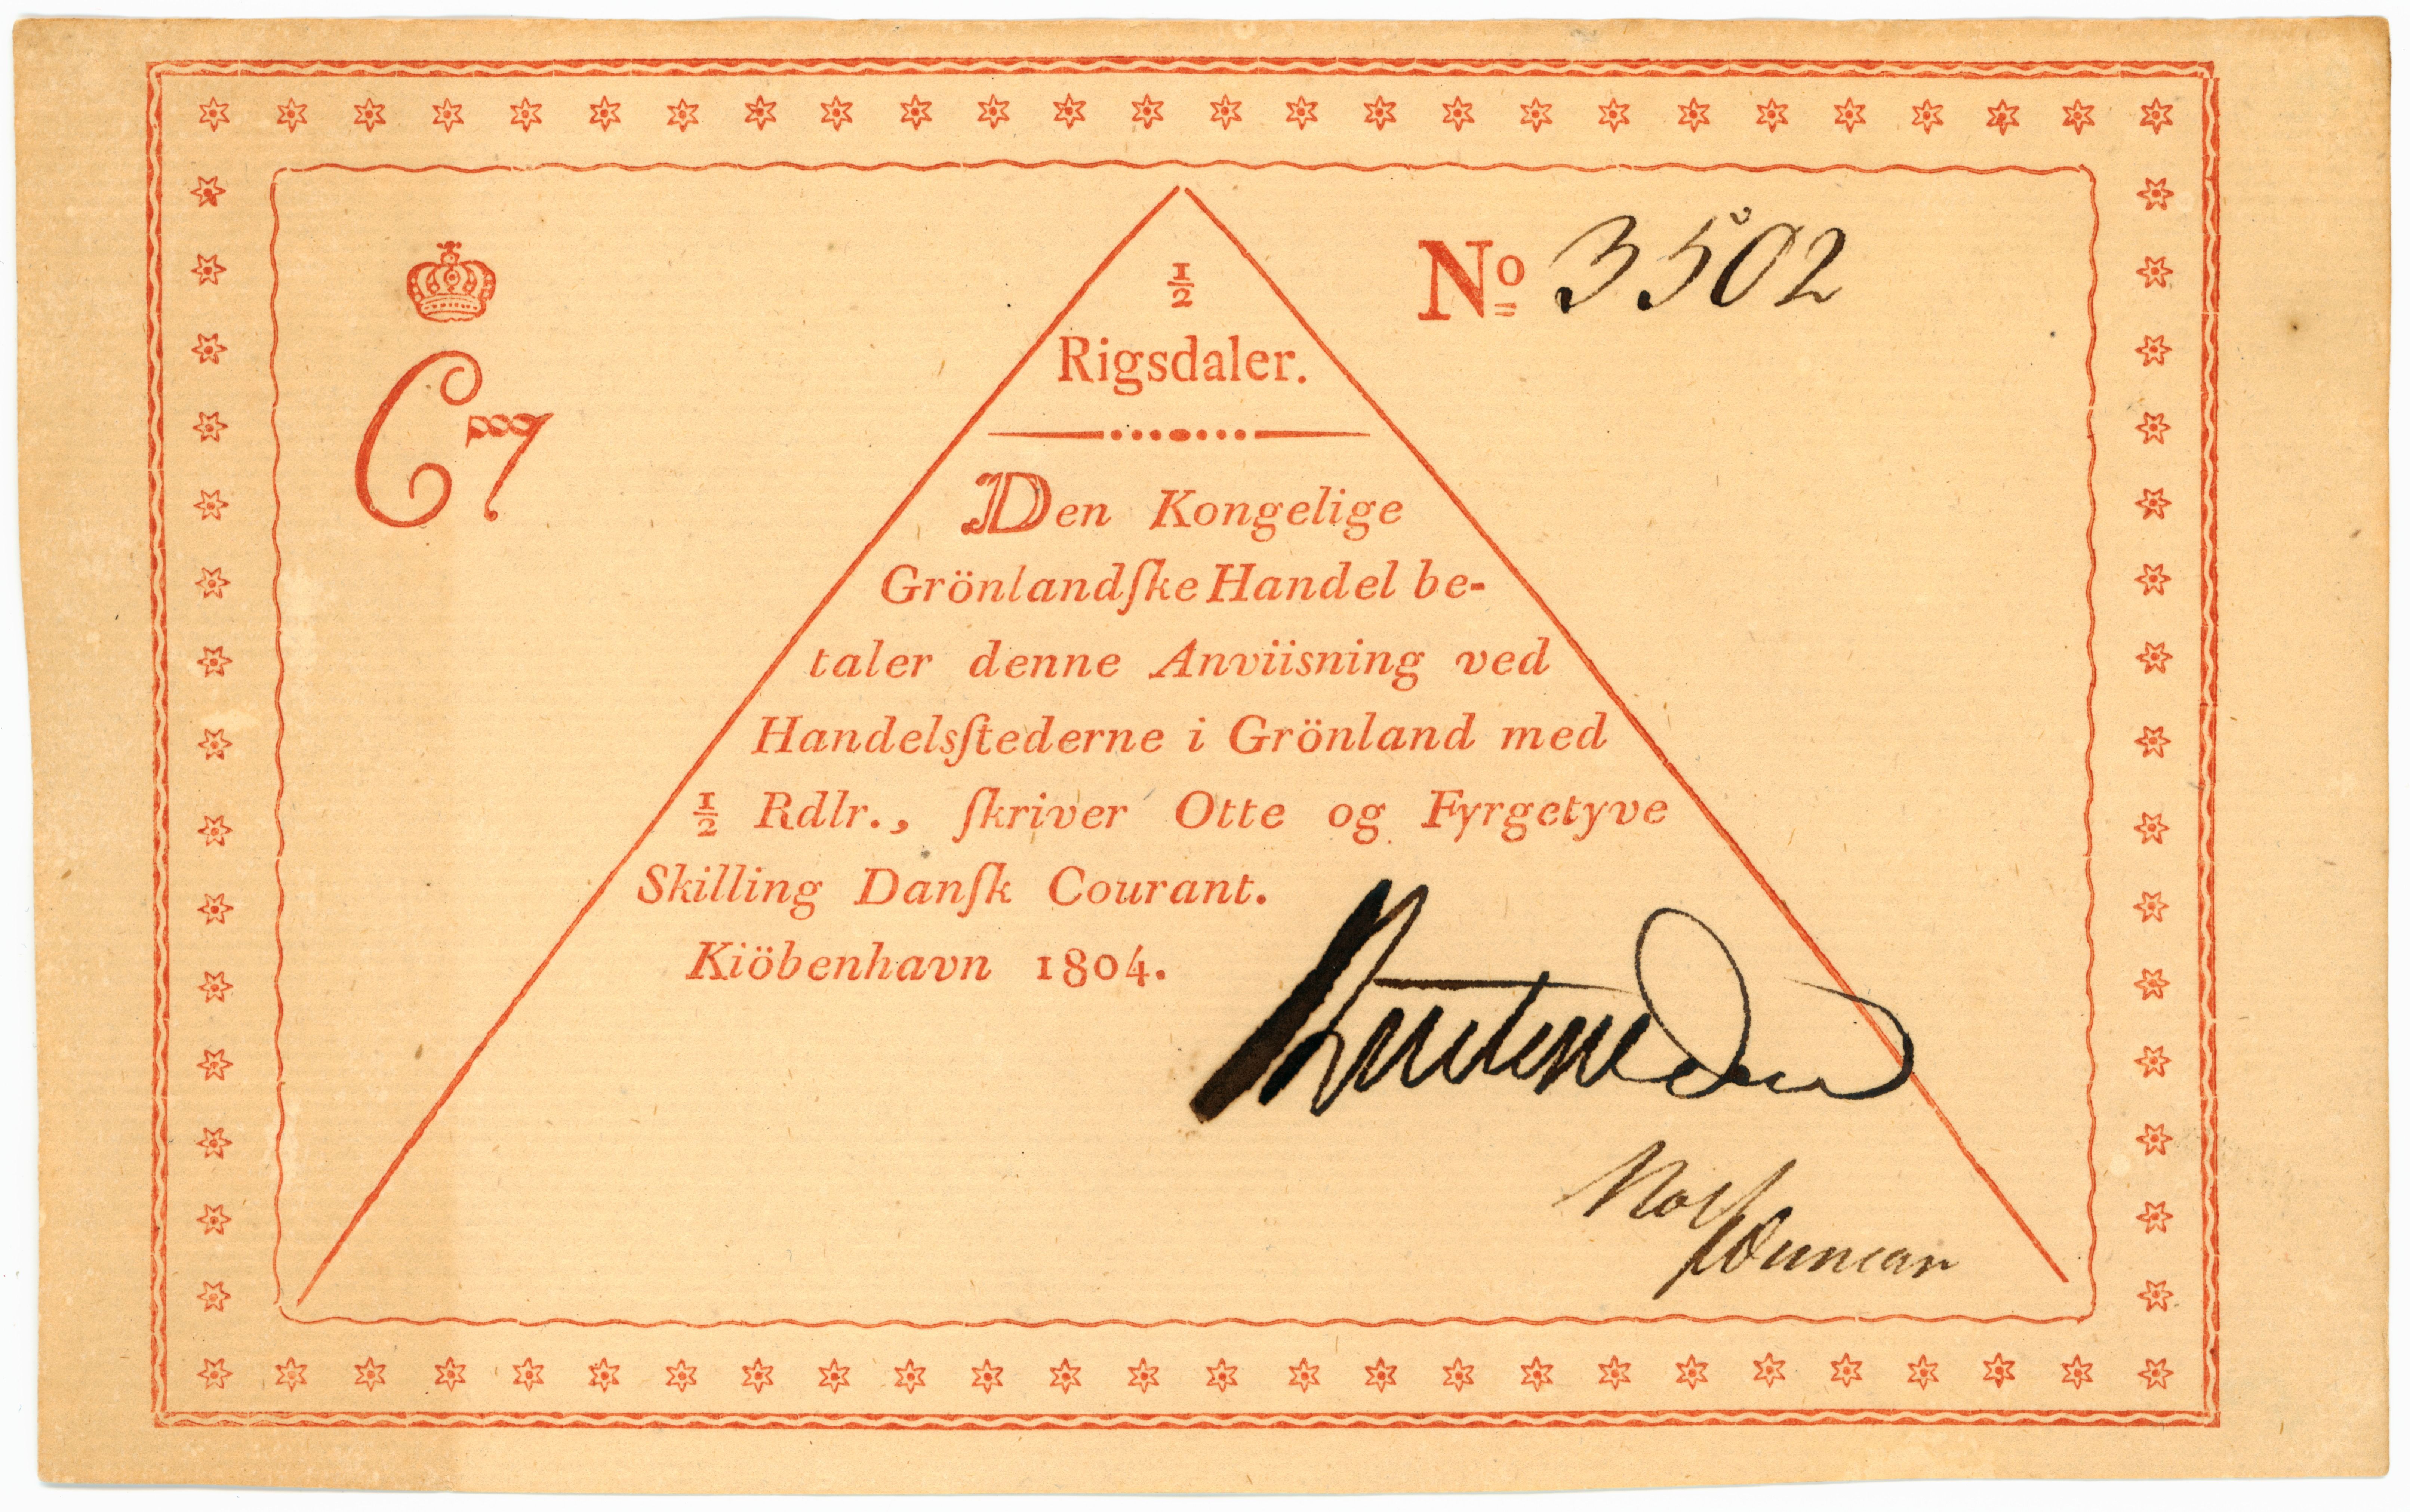 C7
½
Rigsdaler.
Nº 3502
Den Kongelige
Grönlandſke Handel be-
taler denne Anviisning ved
Handelsſtederne i Grönland med
½ Rdlr., ſkriver Otte og Fyrgetyve
Skilling Danſk Courant.
Kiöbenhavn 1804.
Duncan